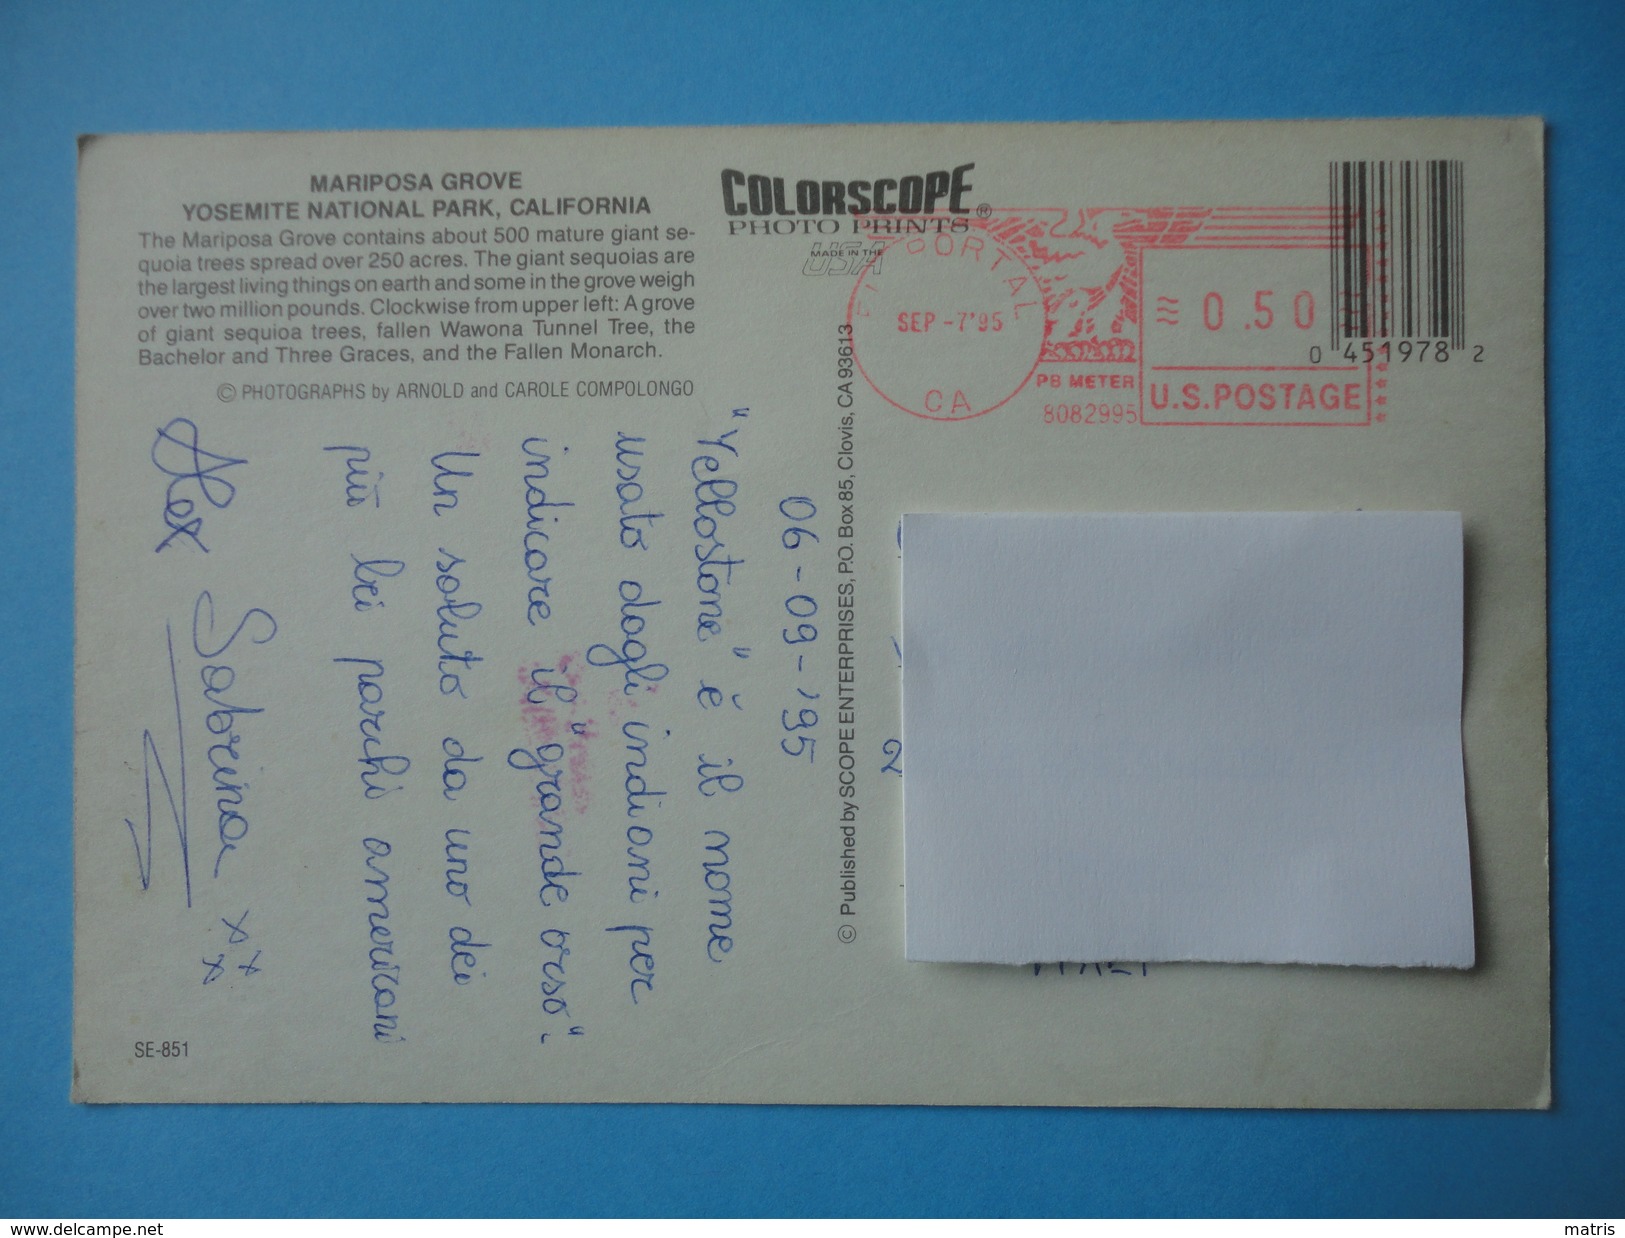 MARIPOSA GROVE
YOSEMITE NATIONAL PARK, CALIFORNIA
The Mariposa Grove contains about 500 mature giant se-
quoia trees spread over 250 acres. The giant sequoias are
the largest living things on earth and some in the grove weigh
over two million pounds. Clockwise from upper left: A grove
of giant sequioa trees, fallen Wawona Tunnel Tree, the
Bachelor and Three Graces, and the Fallen Monarch.
© PHOTOGRAPHS by ARNOLD and CAROLE COMPOLONGO
COLORSCOPE®
PHOTO PRINTS
MADE IN THE
USA
EL PORTAL
SEP -7'95
CA
PB METER
8082995
0.50
U.S.POSTAGE
0 451978 2
© Published by SCOPE ENTERPRISES, P.O. Box 85, Clovis, CA 93613
06-09-'95
"Yellostone" è il nome
usato dagli indiani per
indicare il "grande orso".
Un saluto da uno dei
più bei parchi americani
Alex Sabrina xxx
SE-851
2
www.delcampe.net
matris